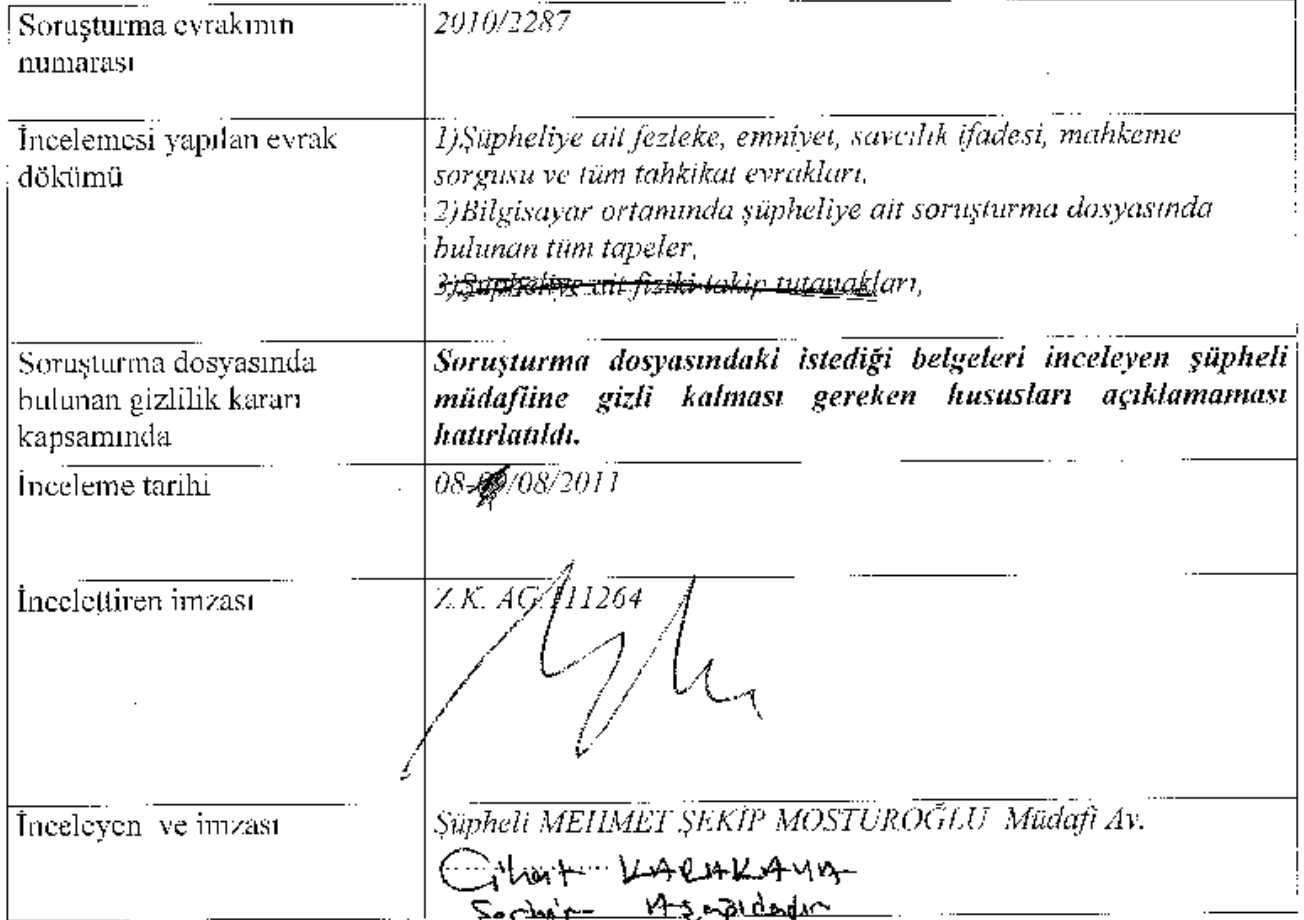 Soruşturma evrakının
numarası
2010/2287
İncelemesi yapılan evrak
dökümü
1)Şüpheliye ait fezleke, emniyet, savcılık ifadesi, mahkeme
sorgusu ve tüm tahkikat evrakları,
2)Bilgisayar ortamında şüpheliye ait soruşturma dosyasında
bulunan tüm tapeler,
3)Şüpheliye ait fiziki takip tutanakları,
Soruşturma dosyasında
bulunan gizlilik kararı
kapsamında
Soruşturma dosyasındaki istediği belgeleri inceleyen şüpheli
müdafiine gizli kalması gereken hususları açıklamaması
hatırlatıldı.
İnceleme tarihi
08-/08/2011
İncelettiren imzası
Z.K. AG.111264
İnceleyen ve imzası
Şüpheli MEHMET ŞEKİP MOSTUROĞLU Müdafi Av.
Cihat KARAKAYA